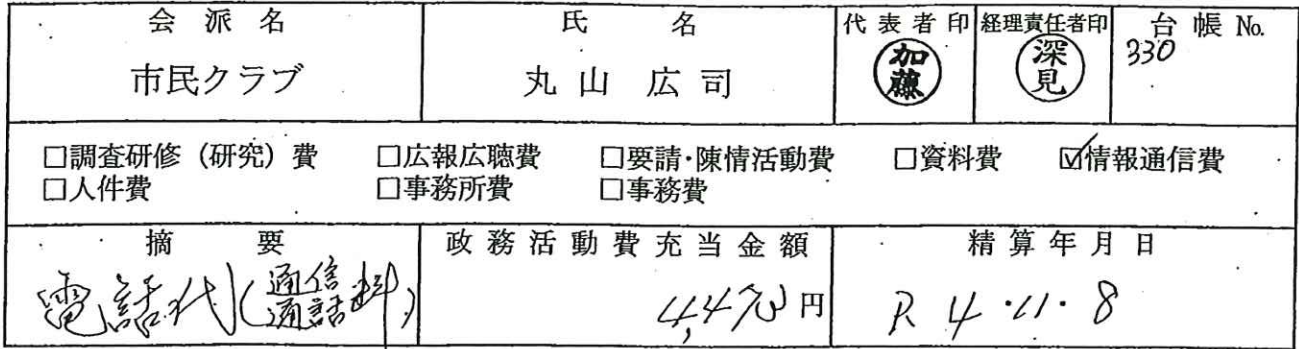 会派名 氏名 代表者印 経理責任者印 台帳No.
市民クラブ 丸山広司 加藤 深見 330
□調査研修（研究）費 □広報広聴費 □要請・陳情活動費 □資料費 ☑情報通信費
□人件費 □事務所費 □事務費
摘要 政務活動費充当金額 精算年月日
電話代(通信通話料) 円 R4・11・8